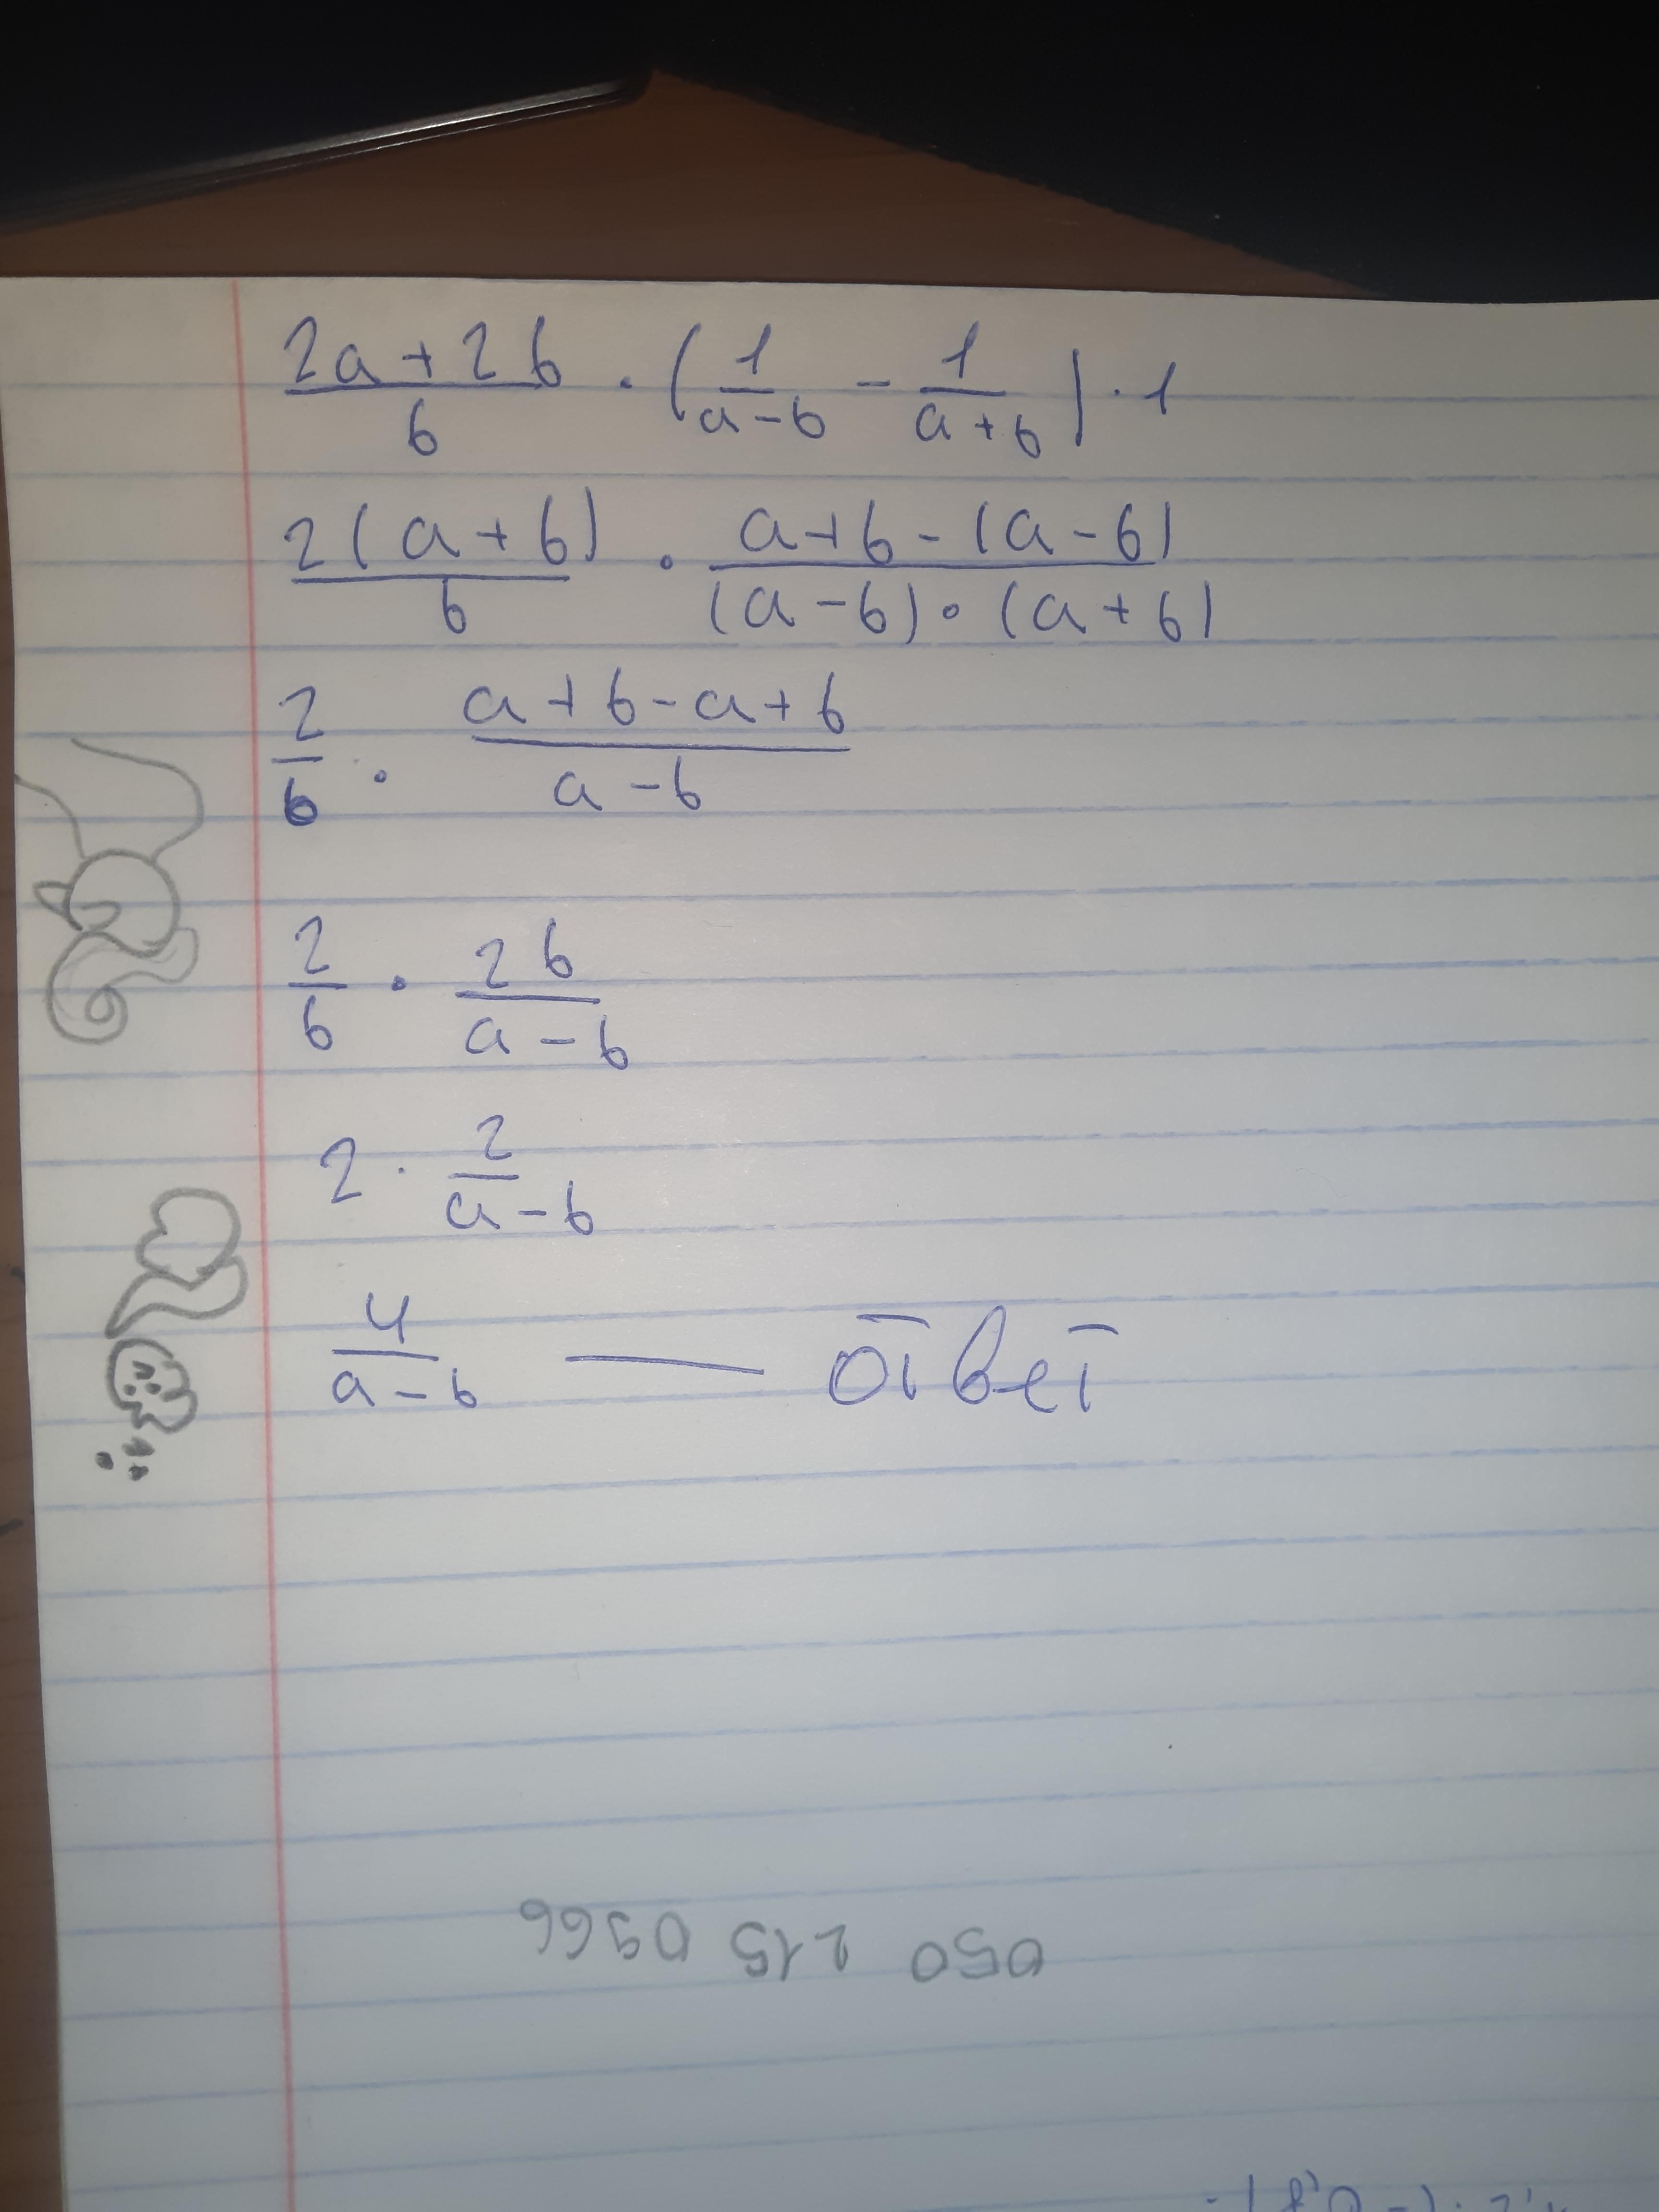 2a+2b/b · (1/a-b - 1/a+b) · 1
2(a+b)/b · a+b-(a-b)/(a-b)·(a+b)
2/b · a+b-a+b/a-b
2/b · 2b/a-b
2 · 2/a-b
4/a-b — ответ
050 215 0966